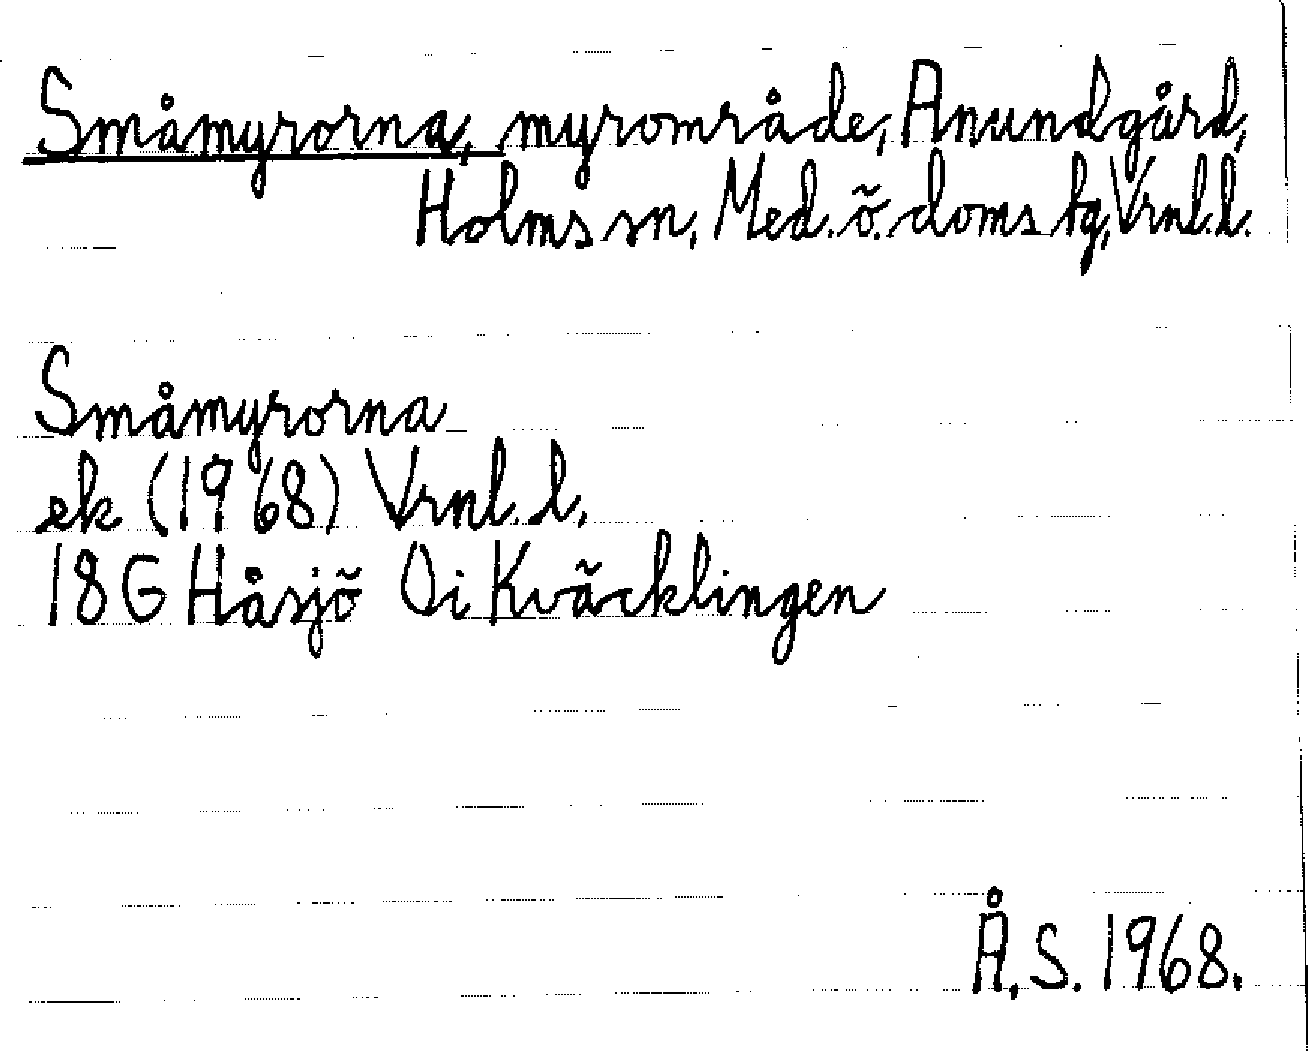 Småmyrorna, myrområde, Anundgård,
Holms sn, Med. ö. doms tg, Vrnl. l.
Småmyrorna
ek (1968) Vrnl. l.
18G Håsjö Oi Kväcklingen
Å. S. 1968.